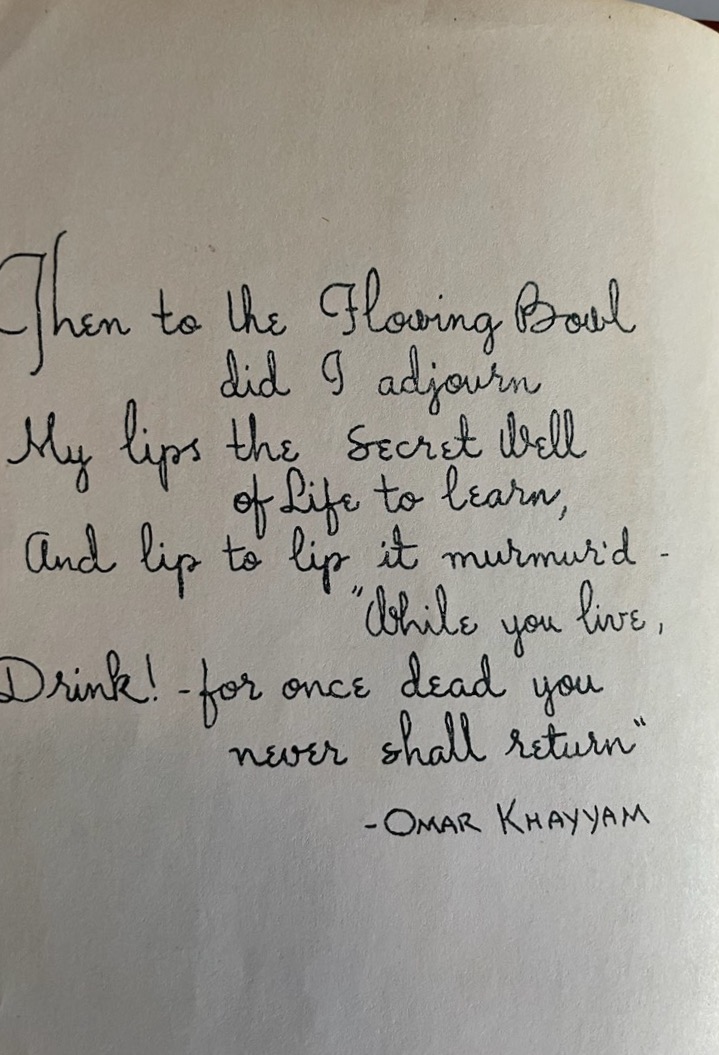 Then to the Flowing Bowl
did I adjourn
My lips the Secret Well
of Life to learn,
And lip to lip it murmur'd -
"While you live,
Drink! - for once dead you
never shall return"
- OMAR KHAYYAM